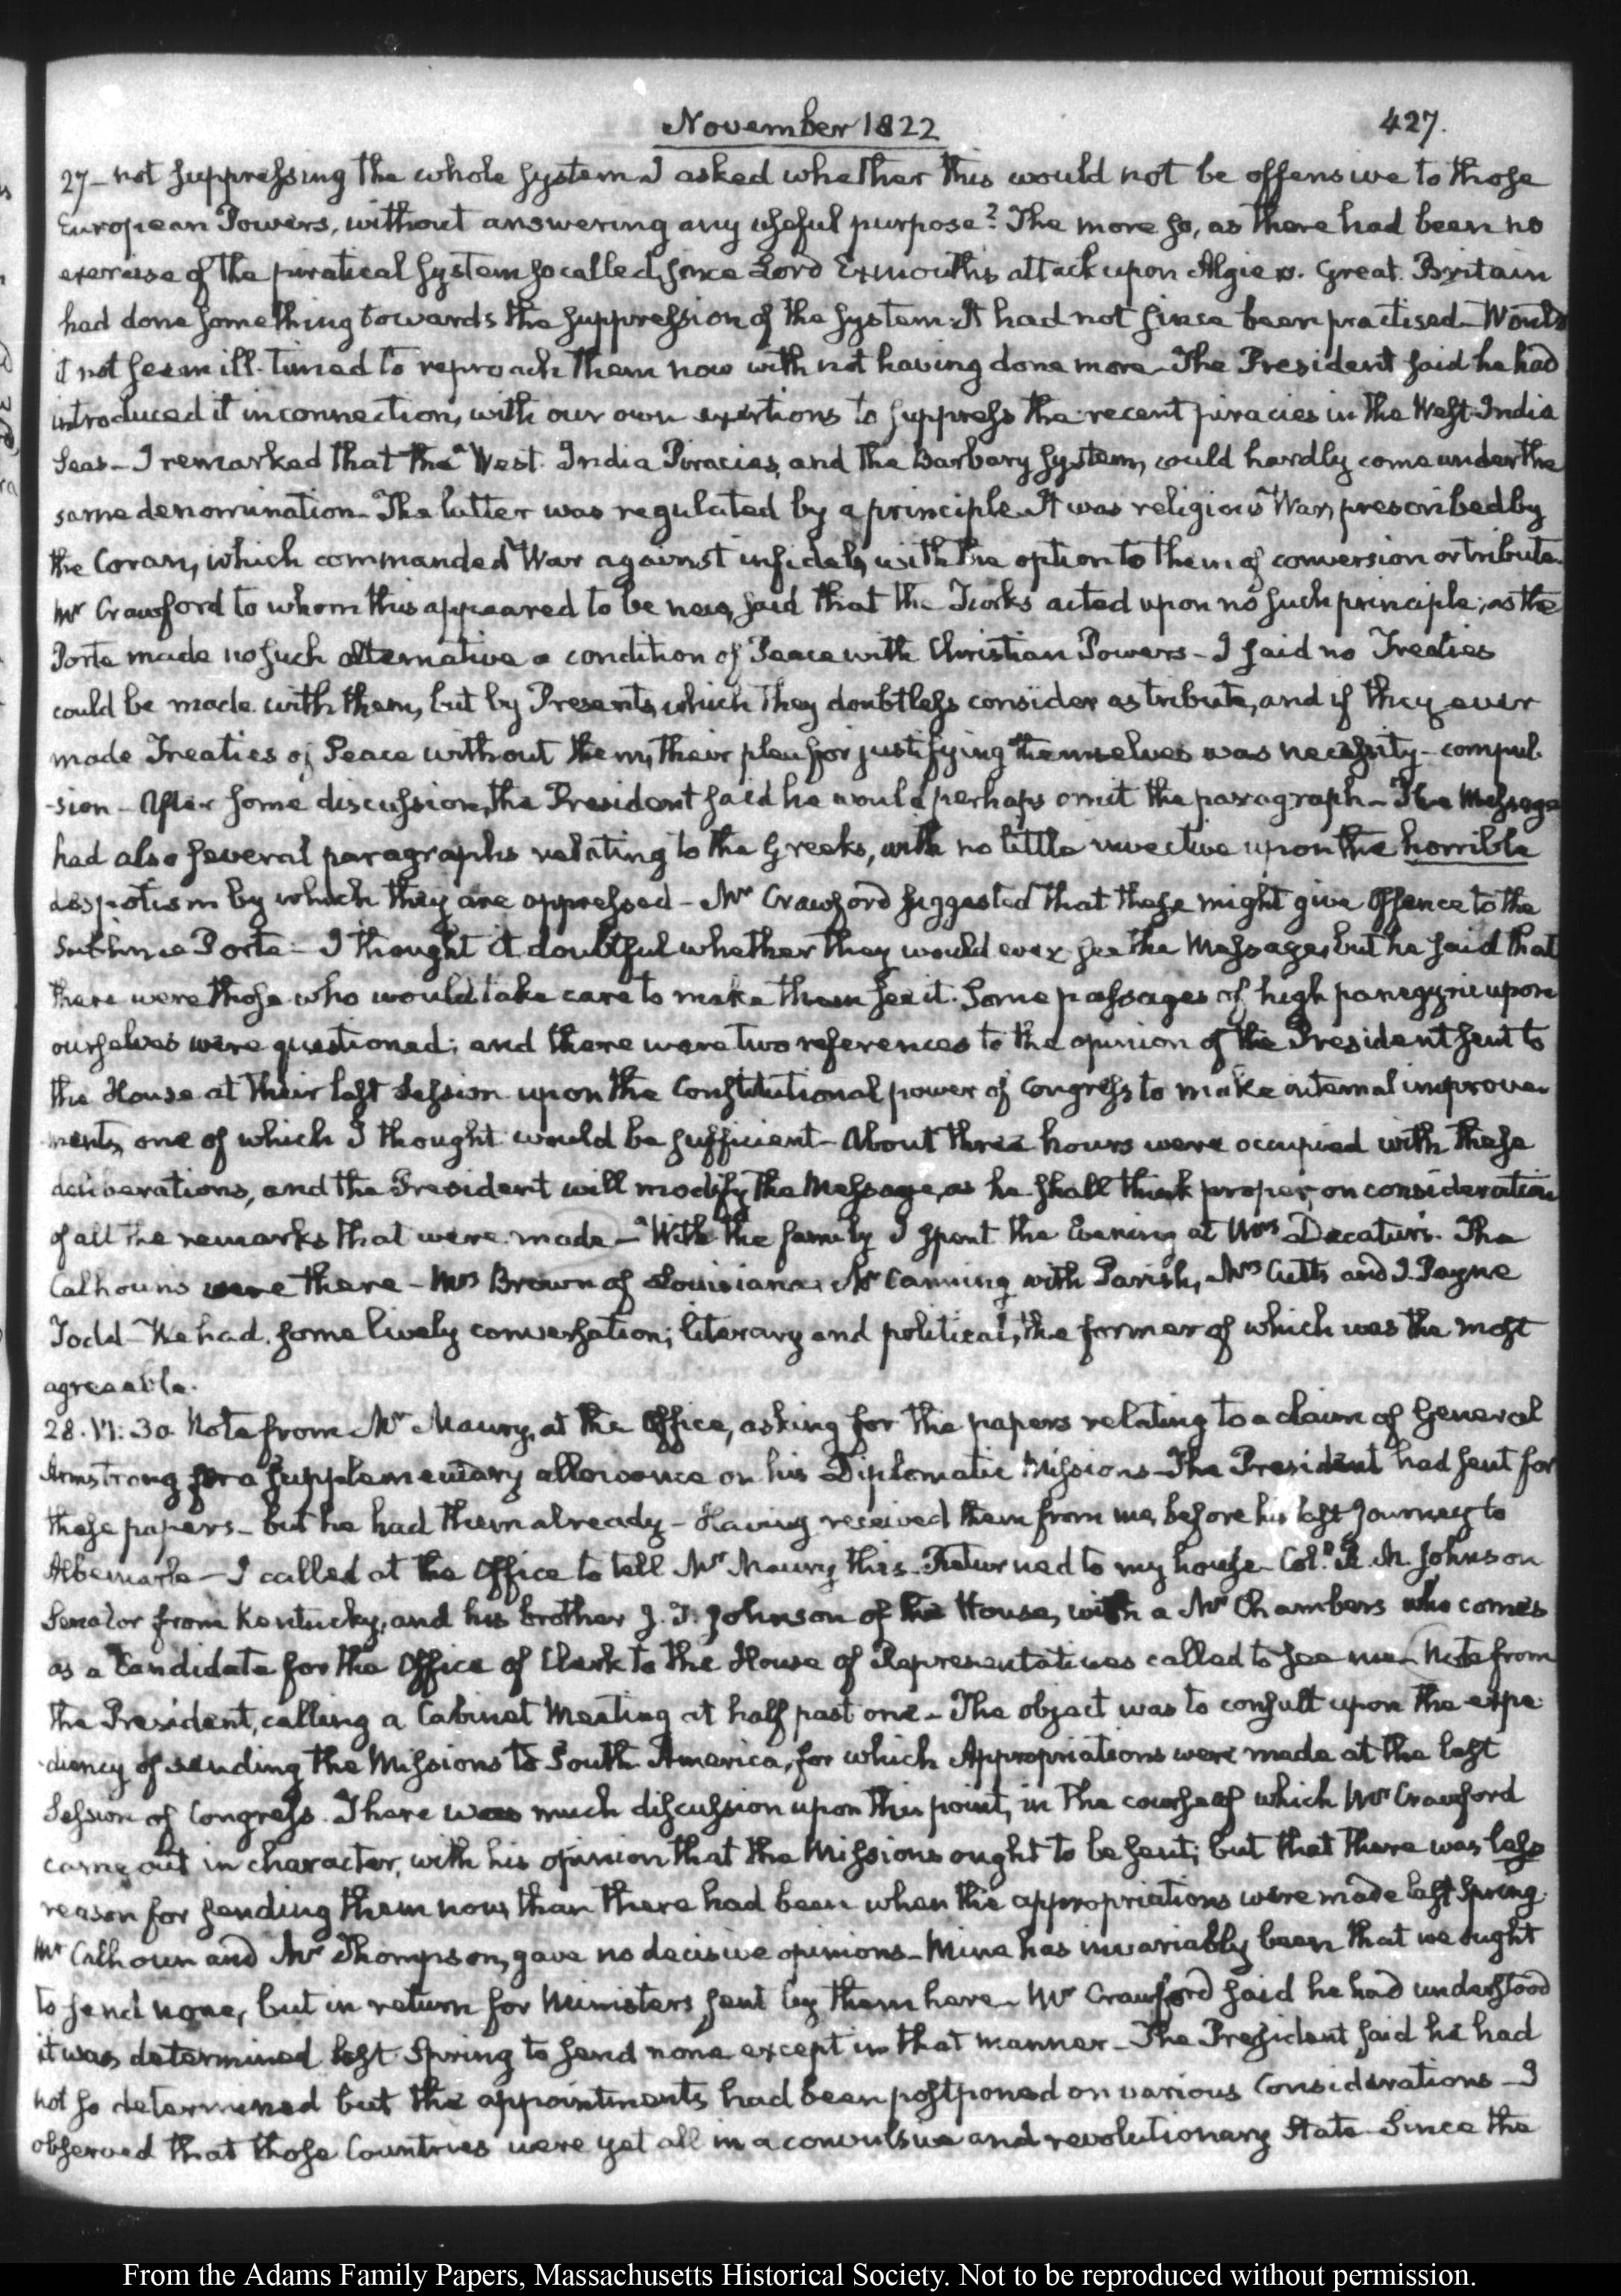 November 1822
427.
27 – not suppressing the whole system. I asked whether this would not be offensive to those
European Powers, without answering any useful purpose? The more so, as there had been no
exercise of the piratical system so called, since Lord Exmouth's attack upon Algiers. Great Britain
had done something towards the suppression of the system. It had not since been practised – Would
it not seem ill-timed to reproach them now with not having done more – The President said he had
introduced it in connection, with our own exertions to suppress the recent piracies in the West-India
Seas – I remarked that the West India Piracies, and the Barbary system, could hardly come under the
same denomination – The latter was regulated by a principle. It was religious War, prescribed by
the Coran, which commanded War against infidels, with the option to them of conversion or tribute.
Mr Crawford to whom this appeared to be new, said that the Turks acted upon no such principle; as the
Porte made no such alternative a condition of Peace with Christian Powers – I said no Treaties
could be made with them, but by Presents, which they doubtless consider as tribute, and if they ever
made Treaties of Peace without them, their plea for justifying themselves was necessity – compul-
-sion – After some discussion, the President said he would perhaps omit the paragraph – The Message
had also several paragraphs relating to the Greeks, with no little invective upon the horrible
despotism by which they are oppressed – Mr Crawford suggested that these might give offence to the
Sublime Porte – I thought it doubtful whether they would ever see the Message, but he said that
there were those who would take care to make them see it. Some passages of high panegyric upon
ourselves were questioned; and there were two references to the opinion of the President sent to
the House at their last Session upon the Constitutional power of Congress to make internal improve-
ments, one of which I thought would be sufficient – About three hours were occupied with these
deliberations, and the President will modify the Message, as he shall think proper, on consideration
of all the remarks that were made – With the family I spent the Evening at Mrs Decatur's. The
Calhouns were there – Mrs Brown of Louisiana, Mr Canning with Parish, Mrs Cutts and J. Payne
Todd – We had some lively conversation; literary and political, the former of which was the most
agreeable.
28. VI: 30 Note from Mr Maury, at the Office, asking for the papers relating to a claim of General
Armstrong for a supplementary allowance on his Diplomatic Missions – The President had sent for
these papers – but he had them already – Having received them from me, before his last journey to
Albemarle – I called at the Office to tell Mr Maury this. Returned to my house – Col. R. M. Johnson
Senator from Kentucky, and his brother J. T. Johnson of the House, with a Mr Chambers who comes
as a Candidate for the Office of Clerk to the House of Representatives called to see me – Note from
the President, calling a Cabinet Meeting at half past one – The object was to consult upon the expe-
-diency of sending the Missions to South America, for which Appropriations were made at the last
Session of Congress. There was much discussion upon this point, in the course of which Mr Crawford
came out in character, with his opinion that the Missions ought to be sent; but that there was less
reason for sending them now, than there had been when the appropriations were made last Spring.
Mr Calhoun and Mr Thompson, gave no decisive opinions – Mine has invariably been that we ought
to send none, but in return for Ministers sent by them here – Mr Crawford said he had understood
it was determined last Spring to send none except in that manner – The President said he had
not so determined but the appointments had been postponed on various Considerations – I
observed that those Countries were yet all in a convulsive and revolutionary State. Since the
From the Adams Family Papers, Massachusetts Historical Society. Not to be reproduced without permission.